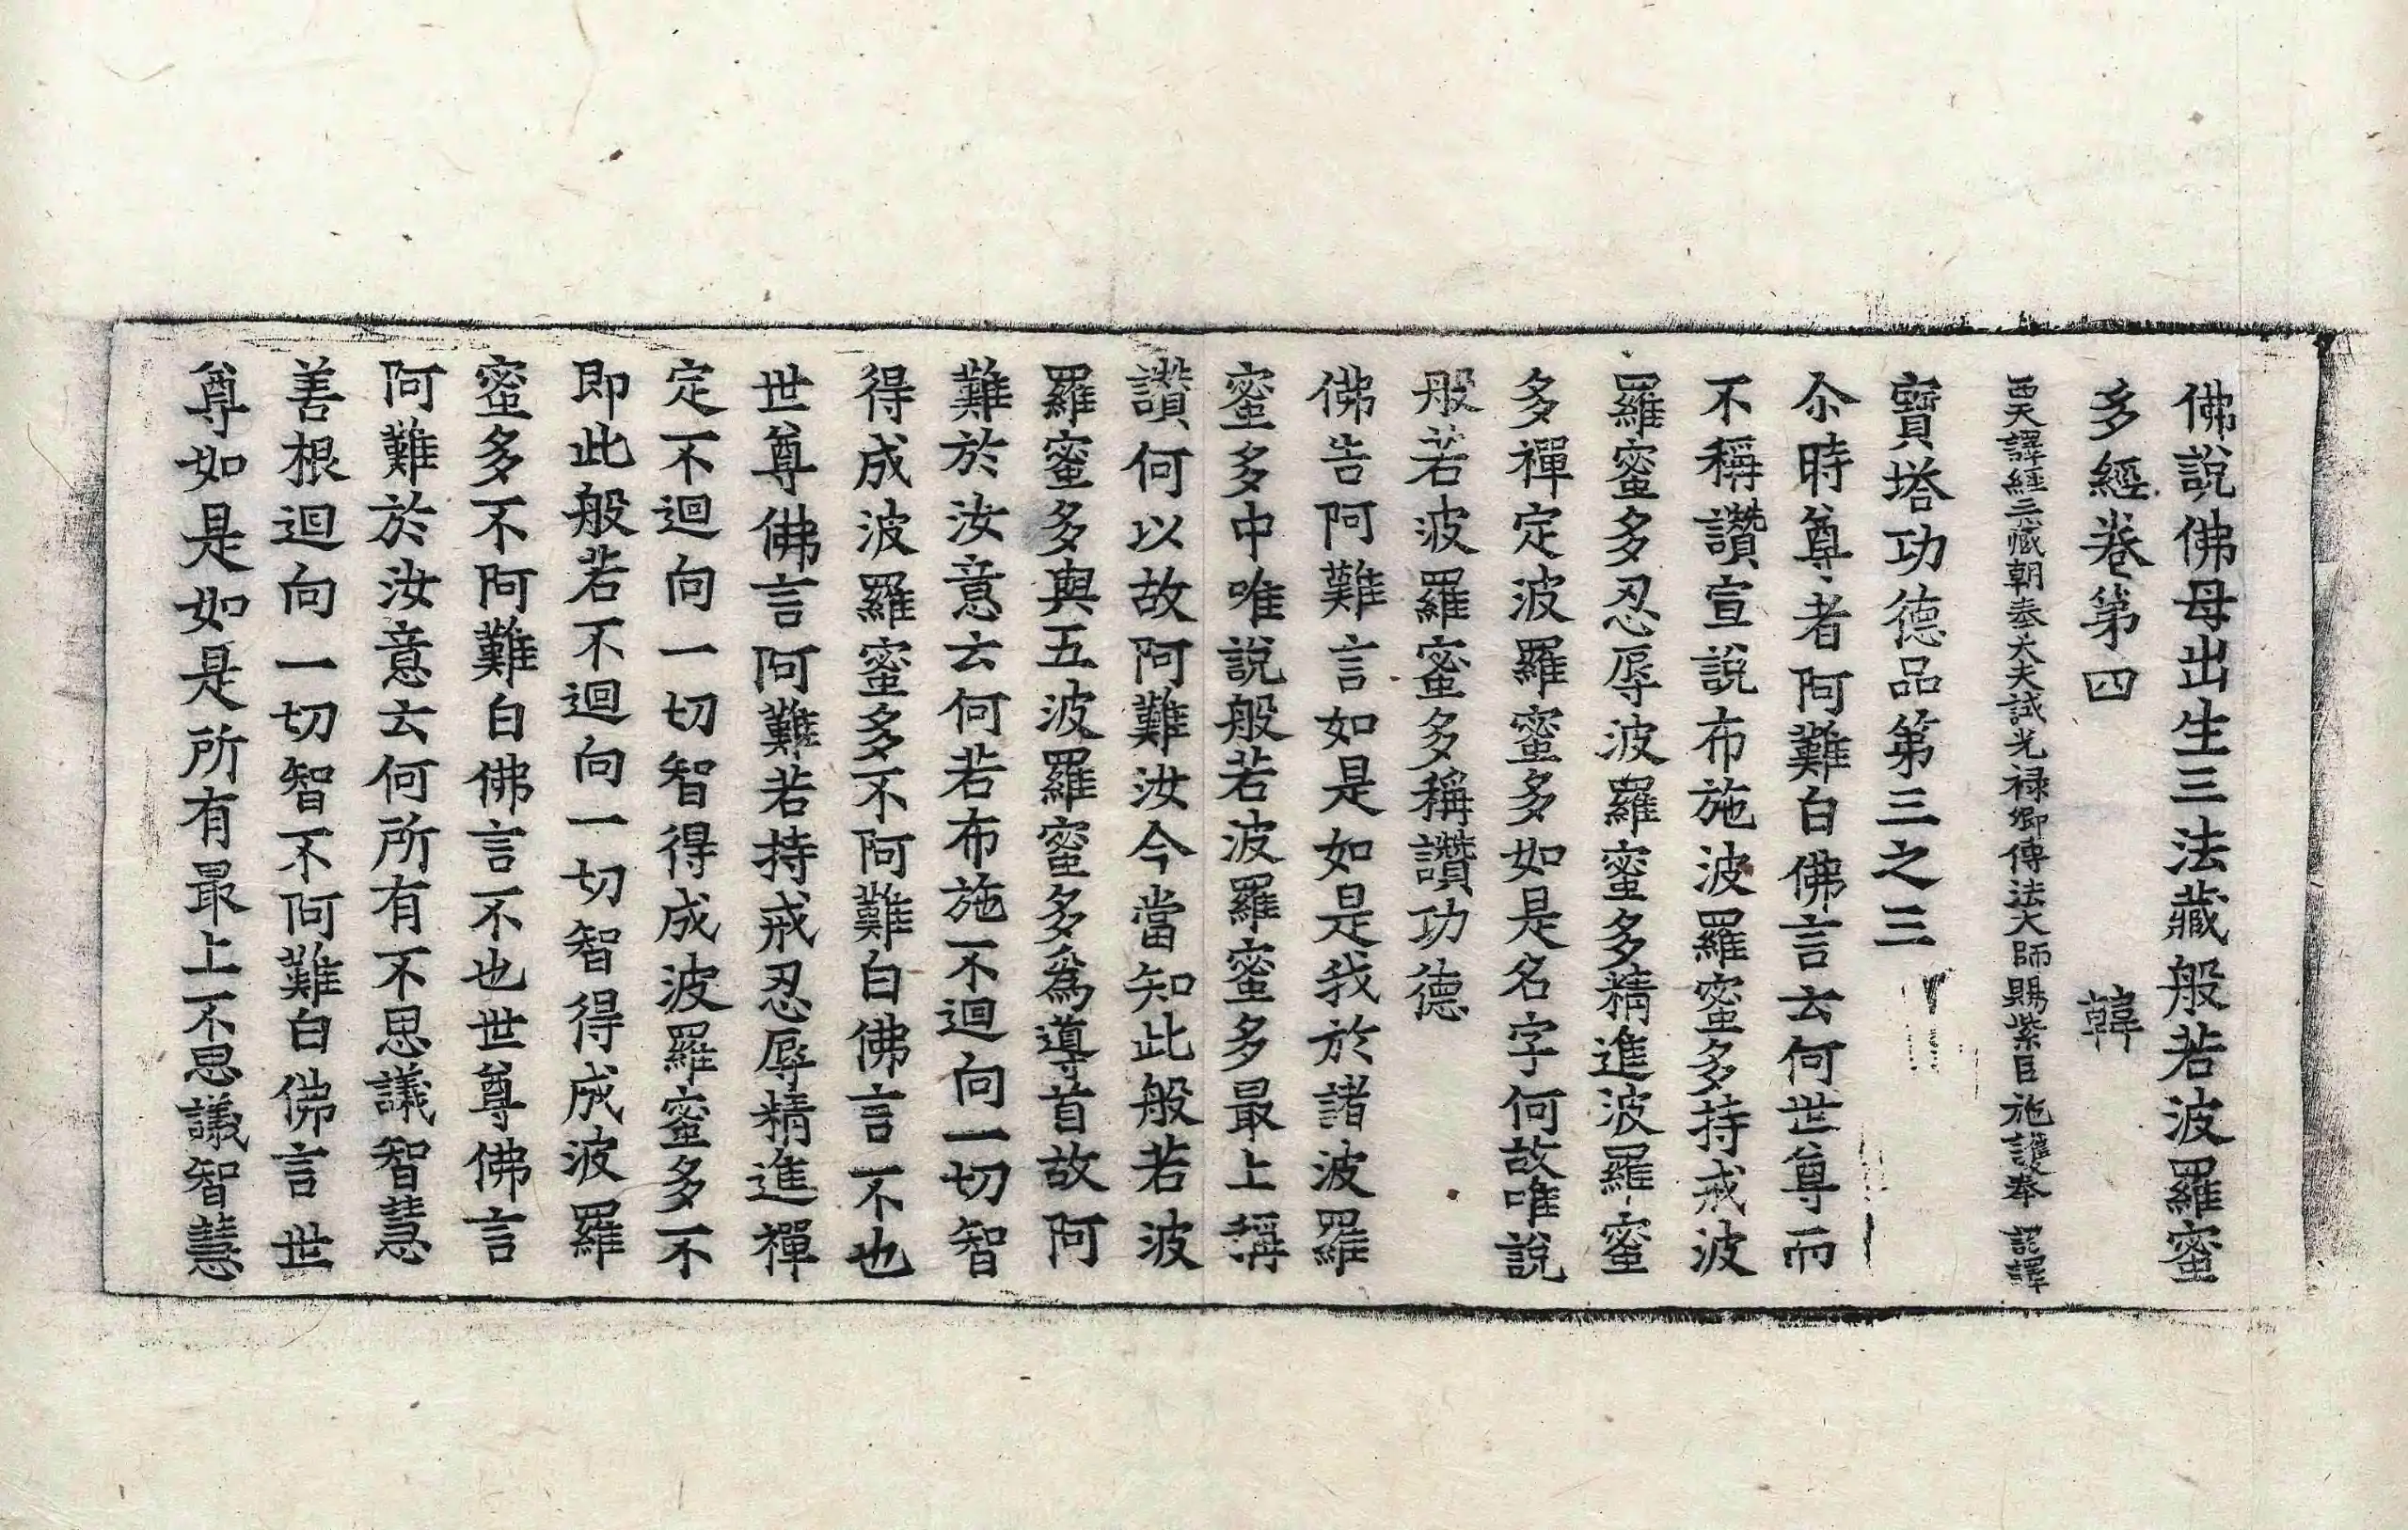 佛說佛母出生三法藏般若波羅蜜
多經卷第四 韓
西天譯經三藏朝奉大夫試光祿卿傳法大師賜紫臣施護奉 詔譯
寶塔功德品第三之三
尒時尊者阿難白佛言云何世尊而
不稱讚宣說布施波羅蜜多持戒波
羅蜜多忍辱波羅蜜多精進波羅蜜
多禪定波羅蜜多如是名字何故唯說
般若波羅蜜多稱讚功德
佛告阿難言如是如是我於諸波羅
蜜多中唯說般若波羅蜜多最上稱
讚何以故阿難汝今當知此般若波
羅蜜多與五波羅蜜多為導首故阿
難於汝意云何若布施不迴向一切智
得成波羅蜜多不阿難白佛言不也
世尊佛言阿難若持戒忍辱精進禪
定不迴向一切智得成波羅蜜多不
即此般若不迴向一切智得成波羅
蜜多不阿難白佛言不也世尊佛言
阿難於汝意云何所有不思議智慧
善根迴向一切智不阿難白佛言世
尊如是如是所有最上不思議智慧